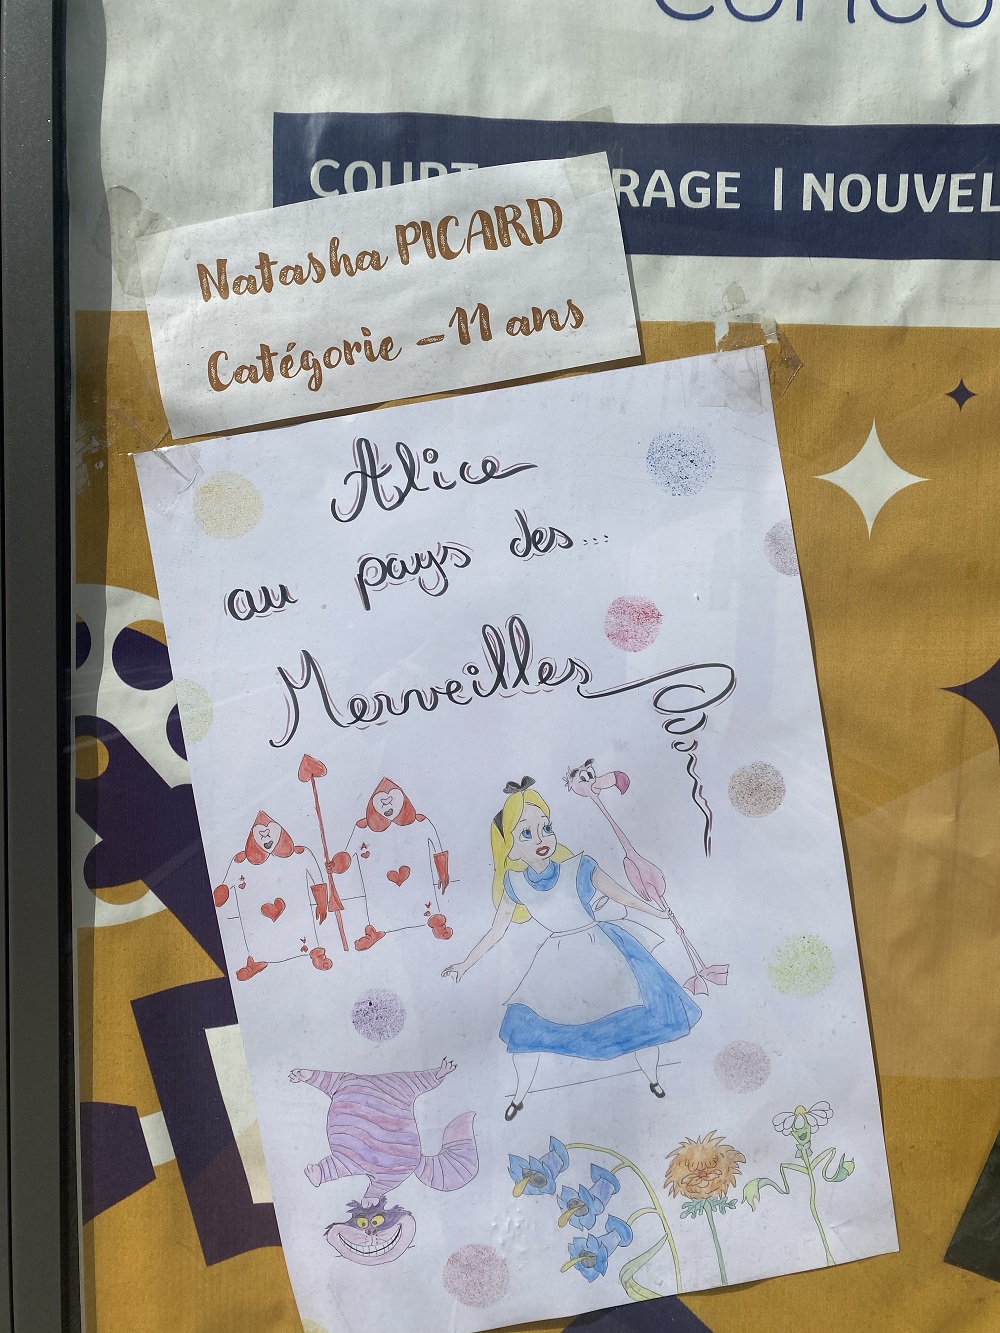 RAGE | NOUVEL
Natasha PICARD
Catégorie -11 ans
Alice
au pays des...
Merveilles